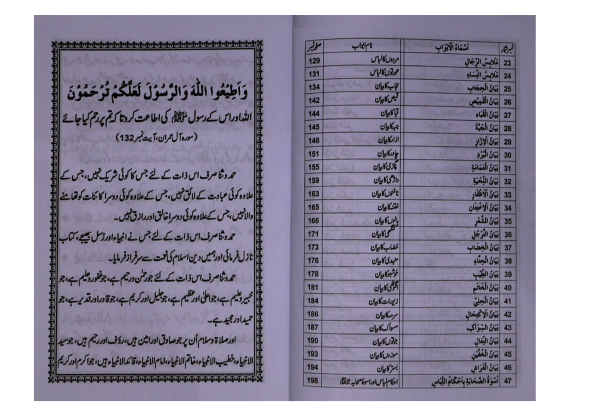 وَاَطِیْعُوا اللّٰهَ وَالرَّسُوْلَ لَعَلَّكُمْ تُرْحَمُوْنَ
اللہ اور اس کے رسول ﷺ کی اطاعت کرو تاکہ تم پر رحم کیا جائے
(سورہ آل عمران، آیت نمبر 132)
حمد و ثنا صرف اس ذات کے لئے جس کا کوئی شریک نہیں، جس کے
علاوہ کوئی عبادت کے لائق نہیں، جس کے علاوہ کوئی دوسرا کائنات کو تھامنے
والا نہیں، جس کے علاوہ کوئی دوسرا خالق اور رازق نہیں۔
حمد و ثنا صرف اس ذات کے لئے جس نے انبیاء اور رسل بھیجے، کتاب
نازل فرمائی اور ہمیں دین اسلام کی نعمت سے سرفراز فرمایا۔
حمد و ثنا صرف اس ذات کے لئے جو رحمٰن اور رحیم ہے، جو غفور و حلیم ہے، جو
خبیر و علیم ہے، جو اعلیٰ اور عظیم ہے، جو جلیل اور کریم ہے، جو قادر اور قدیر ہے، جو
حمید اور مجید ہے۔
اور صلاۃ و سلام اُن پر جو صادق اور امین ہیں، رؤف اور رحیم ہیں، جو سید
الانبیاء، خطیب الانبیاء، خاتم الانبیاء، امام الانبیاء، قائد الانبیاء ہیں، جو اکرم اور کریم
نمبر شمار اَسْمَاءُ الْاَبْوَابِ نام ابواب صفحہ نمبر
23 مَلَابِسُ الرِّجَالِ مردوں کا لباس 129
24 مَلَابِسُ النِّسَاءِ عورتوں کا لباس 131
25 بَیَانُ الْحِجَابِ حجاب کا بیان 134
26 بَیَانُ الْقَمِیْصِ قمیص کا بیان 142
27 بَیَانُ الْقَبَاءِ قبا کا بیان 144
28 بَیَانُ الْجُبَّةِ جبہ کا بیان 145
29 بَیَانُ الْاِزَارِ ازار کا بیان 146
30 بَیَانُ الْبُرْدِ چادر کا بیان 151
31 بَیَانُ الْعِمَامَةِ پگڑی کا بیان 155
32 بَیَانُ اللِّحْیَةِ داڑھی کا بیان 159
33 بَیَانُ الْاَظْفَارِ ناخنوں کا بیان 163
34 بَیَانُ الْاِخْتِتَانِ ختنہ کا بیان 165
35 بَیَانُ الشَّعْرِ بالوں کا بیان 166
36 بَیَانُ التَّرَجُّلِ کنگھی کا بیان 171
37 بَیَانُ الْخِضَابِ خضاب کا بیان 173
38 بَیَانُ الْحِنَّاءِ مہندی کا بیان 176
39 بَیَانُ الطِّیْبِ خوشبو کا بیان 178
40 بَیَانُ الْخَاتَمِ انگوٹھی کا بیان 181
41 بَیَانُ الْحُلِیِّ زیورات کا بیان 184
42 بَیَانُ الْاِکْتِحَالِ سرمہ کا بیان 186
43 بَیَانُ السِّوَاكِ مسواک کا بیان 187
44 بَیَانُ النِّعَالِ جوتوں کا بیان 190
45 بَیَانُ الْخُفَّیْنِ موزوں کا بیان 193
46 بَیَانُ الْفِرَاشِ بستر کا بیان 194
47 اُسْوَةُ الصَّحَابَةِ بِاَحْكَامِ اللِّبَاسِ احکام لباس اور اسوۂ صحابہ 198